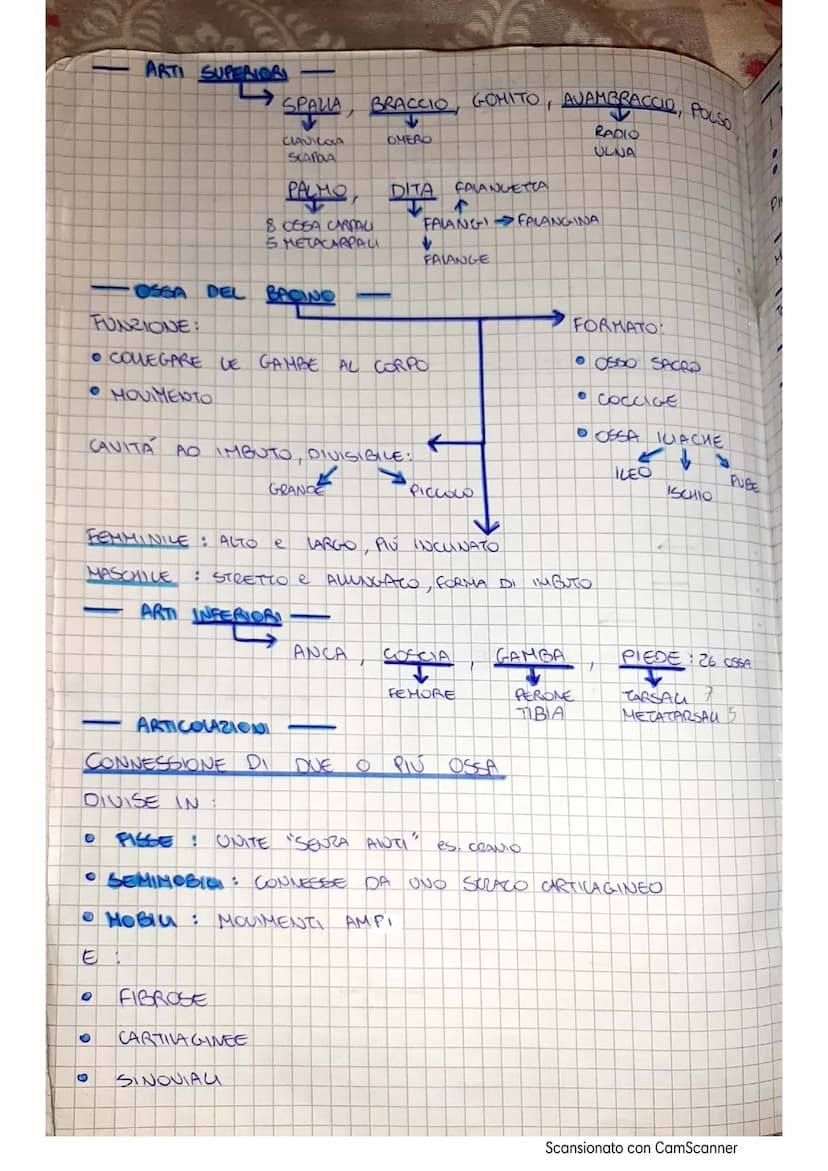 ARTI SUPERIORI
SPALLA, BRACCIO, GOMITO, AVAMBRACCIO, POLSO
CLAVICOLA OMERO RADIO
SCAPOLA ULNA
PALMO, DITA FALANGETTA
8 OSSA CARPALI FALANGI → FALANGINA
5 METACARPALI
FALANGE
OSSA DEL BACINO
FUNZIONE: FORMATO:
• COLLEGARE LE GAMBE AL CORPO • OSSO SACRO
• MOVIMENTO • COCCIGE
CAVITÀ AD IMBUTO, DIVISIBILE: • OSSA ILIACHE
GRANDE PICCOLO ILEO ISCHIO PUBE
FEMMINILE : ALTO e LARGO, PIÚ INCLINATO
MASCHILE : STRETTO e ALLUNGATO, FORMA DI IMBUTO
ARTI INFERIORI
ANCA, COSCIA, GAMBA, PIEDE : 26 OSSA
FEMORE PERONE TARSALI 7
TIBIA METATARSALI 5
ARTICOLAZIONI
CONNESSIONE DI DUE O PIÚ OSSA
DIVISE IN :
• FISSE : UNITE "SENZA AIUTI" es. CRANIO
• SEMIMOBILI : CONNESSE DA UNO STRATO CARTILAGINEO
• MOBILI : MOVIMENTI AMPI
E :
• FIBROSE
• CARTILAGINEE
• SINOVIALI
Scansionato con CamScanner